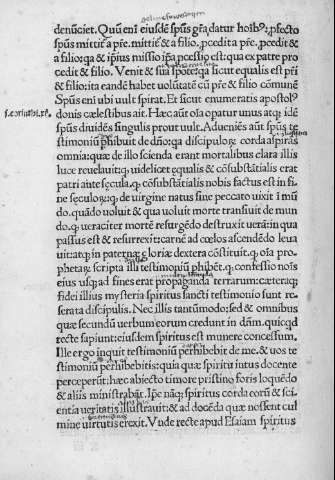 denūciet. Quū eni eiusdē spūs gr̃a datur hoib⁹: ꝓfecto
spūs mittit̃ a pr̃e. mittit̃ & a filio. ꝓcedit a pr̃e. ꝓcedit &
a filio: qa & ip̃ius missio ip̃a ꝓcessio est: qua ex patre pro
cedit & filio. Venit & sua spōte: qa sicut equalis est pr̃i
& filio: ita eandē habet volūtatē cū pr̃e & filio cōmunē
Spūs eni ubi uult spirat. Et sicut enumeratis apostol⁹
donis cælestibus ait. Hæc aūt oĩa opatur unus atq; idē
spūs diuidēs singulis prout uult. Adueniēs aūt spūs te
stimoniū ꝑhibuit de dn̄o: qa discipulor̃ corda aspirās
omnia: quæ de illo scienda erant mortalibus clara illis
luce reuelauit: q; uidelicet equalis & cōsubstātialis erat
patri ante sęcula. q; cōsubstātialis nobis factus est in fi
ne sęculor̃: q; de virgine natus sine peccato uixit i mū
do. quādo voluit & qua voluit morte transiuit de mun
do. q; ueraciter mortē resurgēdo destruxit uerā: in qua
passus est & resurrexit: carnē ad cœlos ascendēdo leua
uit: atq; in paternæ gloriæ dextera cōstituit. q; oĩa pro
phetar̃ scripta illi testimoniū ꝑhibēt. q; confessio nois
eius usq; ad fines erat propaganda terrarum: cæteraq;
fidei illius mysteria spiritus sancti testimonio sunt re
serata discipulis. Nec illis tantūmodo: sed & omnibus
quæ secundū uerbum eorum credunt in dn̄m. quicqd
recte sapiunt: eiusdem spiritus est munere concessum.
Ille ergo inquit testimoniū perhibebit de me. & uos te
stimoniū perhibebitis: quia quæ spiritu intus docente
perceperūt: hæc abiecto timore pristino foris loquēdo
& aliis ministrabāt. Ip̃e nāq; spiritus corda eorū & sci
entia ueritatis illustrauit: & ad docēda quæ nossent cul
mine virtutis erexit. Vnde recte apud Esaiam spiritus